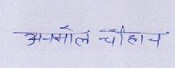 अनमोल चौहान